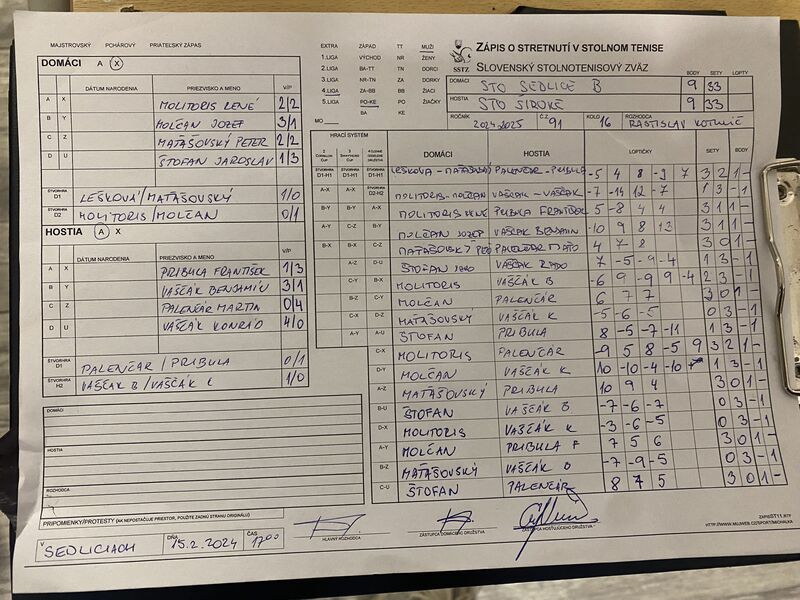 MAJSTROVSKÝ POHÁROVÝ PRIATEĽSKÝ ZÁPAS
DOMÁCI A X
DÁTUM NARODENIA PRIEZVISKO A MENO V/P
A X MOLITORIS RENÉ 2/2
B Y MOLČAN JOZEF 3/1
C Z MAŤAŠOVSKÝ PETER 2/2
D U ŠTOFAN JAROSLAV 1/3
ŠTVORHRA D1 LEŠKOVÁ/MAŤAŠOVSKÝ 1/0
ŠTVORHRA D2 MOLITORIS/MOLČAN 0/1
HOSTIA A X
DÁTUM NARODENIA PRIEZVISKO A MENO V/P
A X PRIBULA FRANTIŠEK 1/3
B Y VAŠČÁK BENJAMÍN 3/1
C Z PALENČÁR MARTIN 0/4
D U VAŠČÁK KONRÁD 4/0
ŠTVORHRA D1 PALENČAR / PRIBULA 0/1
ŠTVORHRA H2 VAŠČAK B/VAŠČÁK K 1/0
DOMÁCI
HOSTIA
ROZHODCA
PRIPOMIENKY/PROTESTY (AK NEPOSTAČUJE PRIESTOR, POUŽITE ZADNÚ STRANU ORIGINÁLU)
V SEDLICIACH DŇA 15.2.2024 ČAS 17 00
EXTRA ZÁPAD TT MUŽI
1.LIGA VÝCHOD NR ŽENY
2.LIGA BA-TT TN DORCI
3.LIGA NR-TN ZA DORKY
4.LIGA ZA-BB BB ŽIACI
5.LIGA PO-KE PO ŽIAČKY
BA KE
MO
SSTZ
ZÁPIS O STRETNUTÍ V STOLNOM TENISE
SLOVENSKÝ STOLNOTENISOVÝ ZVÄZ
BODY SETY LOPTY
DOMÁCI STO SEDLICE B 9 33
HOSTIA STO ŠIROKÉ 9 33
ROČNÍK 2024-2025 Č.Z 91 KOLO 16 ROZHODCA RASTISLAV
HRACÍ SYSTÉM
DOMÁCI HOSTIA LOPTIČKY SETY BODY
ŠTVORHRA D1-H1 ŠTVORHRA D1-H1 ŠTVORHRA D1-H1 LEŠKOVÁ - PALENČAR - PRIBULA -5 4 8 -9 7 3 2 1 -
A-X A-X ŠTVORHRA D2-H2 MOLITORIS-MOLČAN VAŠČAK - VAŠČAK -7 -14 12 -7 1 3 - 1
B-Y B-Y A-X MOLITORIS RENÉ PRIBULA FRANTIŠEK 5 -8 4 4 3 1 1 -
A-Y C-Z B-Y MOLČAN JOZEF VAŠČAK BENJAMIN -10 9 8 13 3 1 1 -
B-X B-X C-Z PALENČAR 4 7 8 3 0 1 -
A-Z D-U ŠTOFAN VAŠČAK 7 -5 -9 -4 1 3 - 1
C-Y B-X MOLITORIS VAŠČAK B -6 9 -9 9 -4 2 3 - 1
B-Z C-Y MOLČAN PALENČÁR 6 7 7 3 0 1 -
C-X D-Z MAŤAŠOVSKÝ VAŠČAK K -5 -6 -5 0 3 - 1
A-Y A-U ŠTOFAN PRIBULA 8 -5 -7 -11 1 3 - 1
C-X MOLITORIS PALENČÁR -9 5 8 -5 9 3 2 1 -
D-Y MOLČAN VAŠČAK K 10 -10 -4 -10 1 3 - 1
A-Z MAŤAŠOVSKÝ PRIBULA 10 9 4 3 0 1 -
B-U ŠTOFAN VAŠČÁK B -7 -6 -7 0 3 - 1
D-X MOLITORIS VAŠČÁK K -3 -6 -5 0 3 - 1
A-Y MOLČAN PRIBULA F 7 5 6 3 0 1 -
B-Z MAŤAŠOVSKÝ VAŠČÁK B -7 -9 -5 0 3 - 1
C-U ŠTOFAN PALENČÁR 8 7 5 3 0 1 -
HLAVNÝ ROZHODCA
ZÁSTUPCA DOMÁCEHO DRUŽSTVA
ZÁSTUPCA HOSŤUJÚCEHO DRUŽSTVA
ZAPISST11.RTF
HTTP://WWW.MUJWEB.CZ/SPORT/MICHALKA